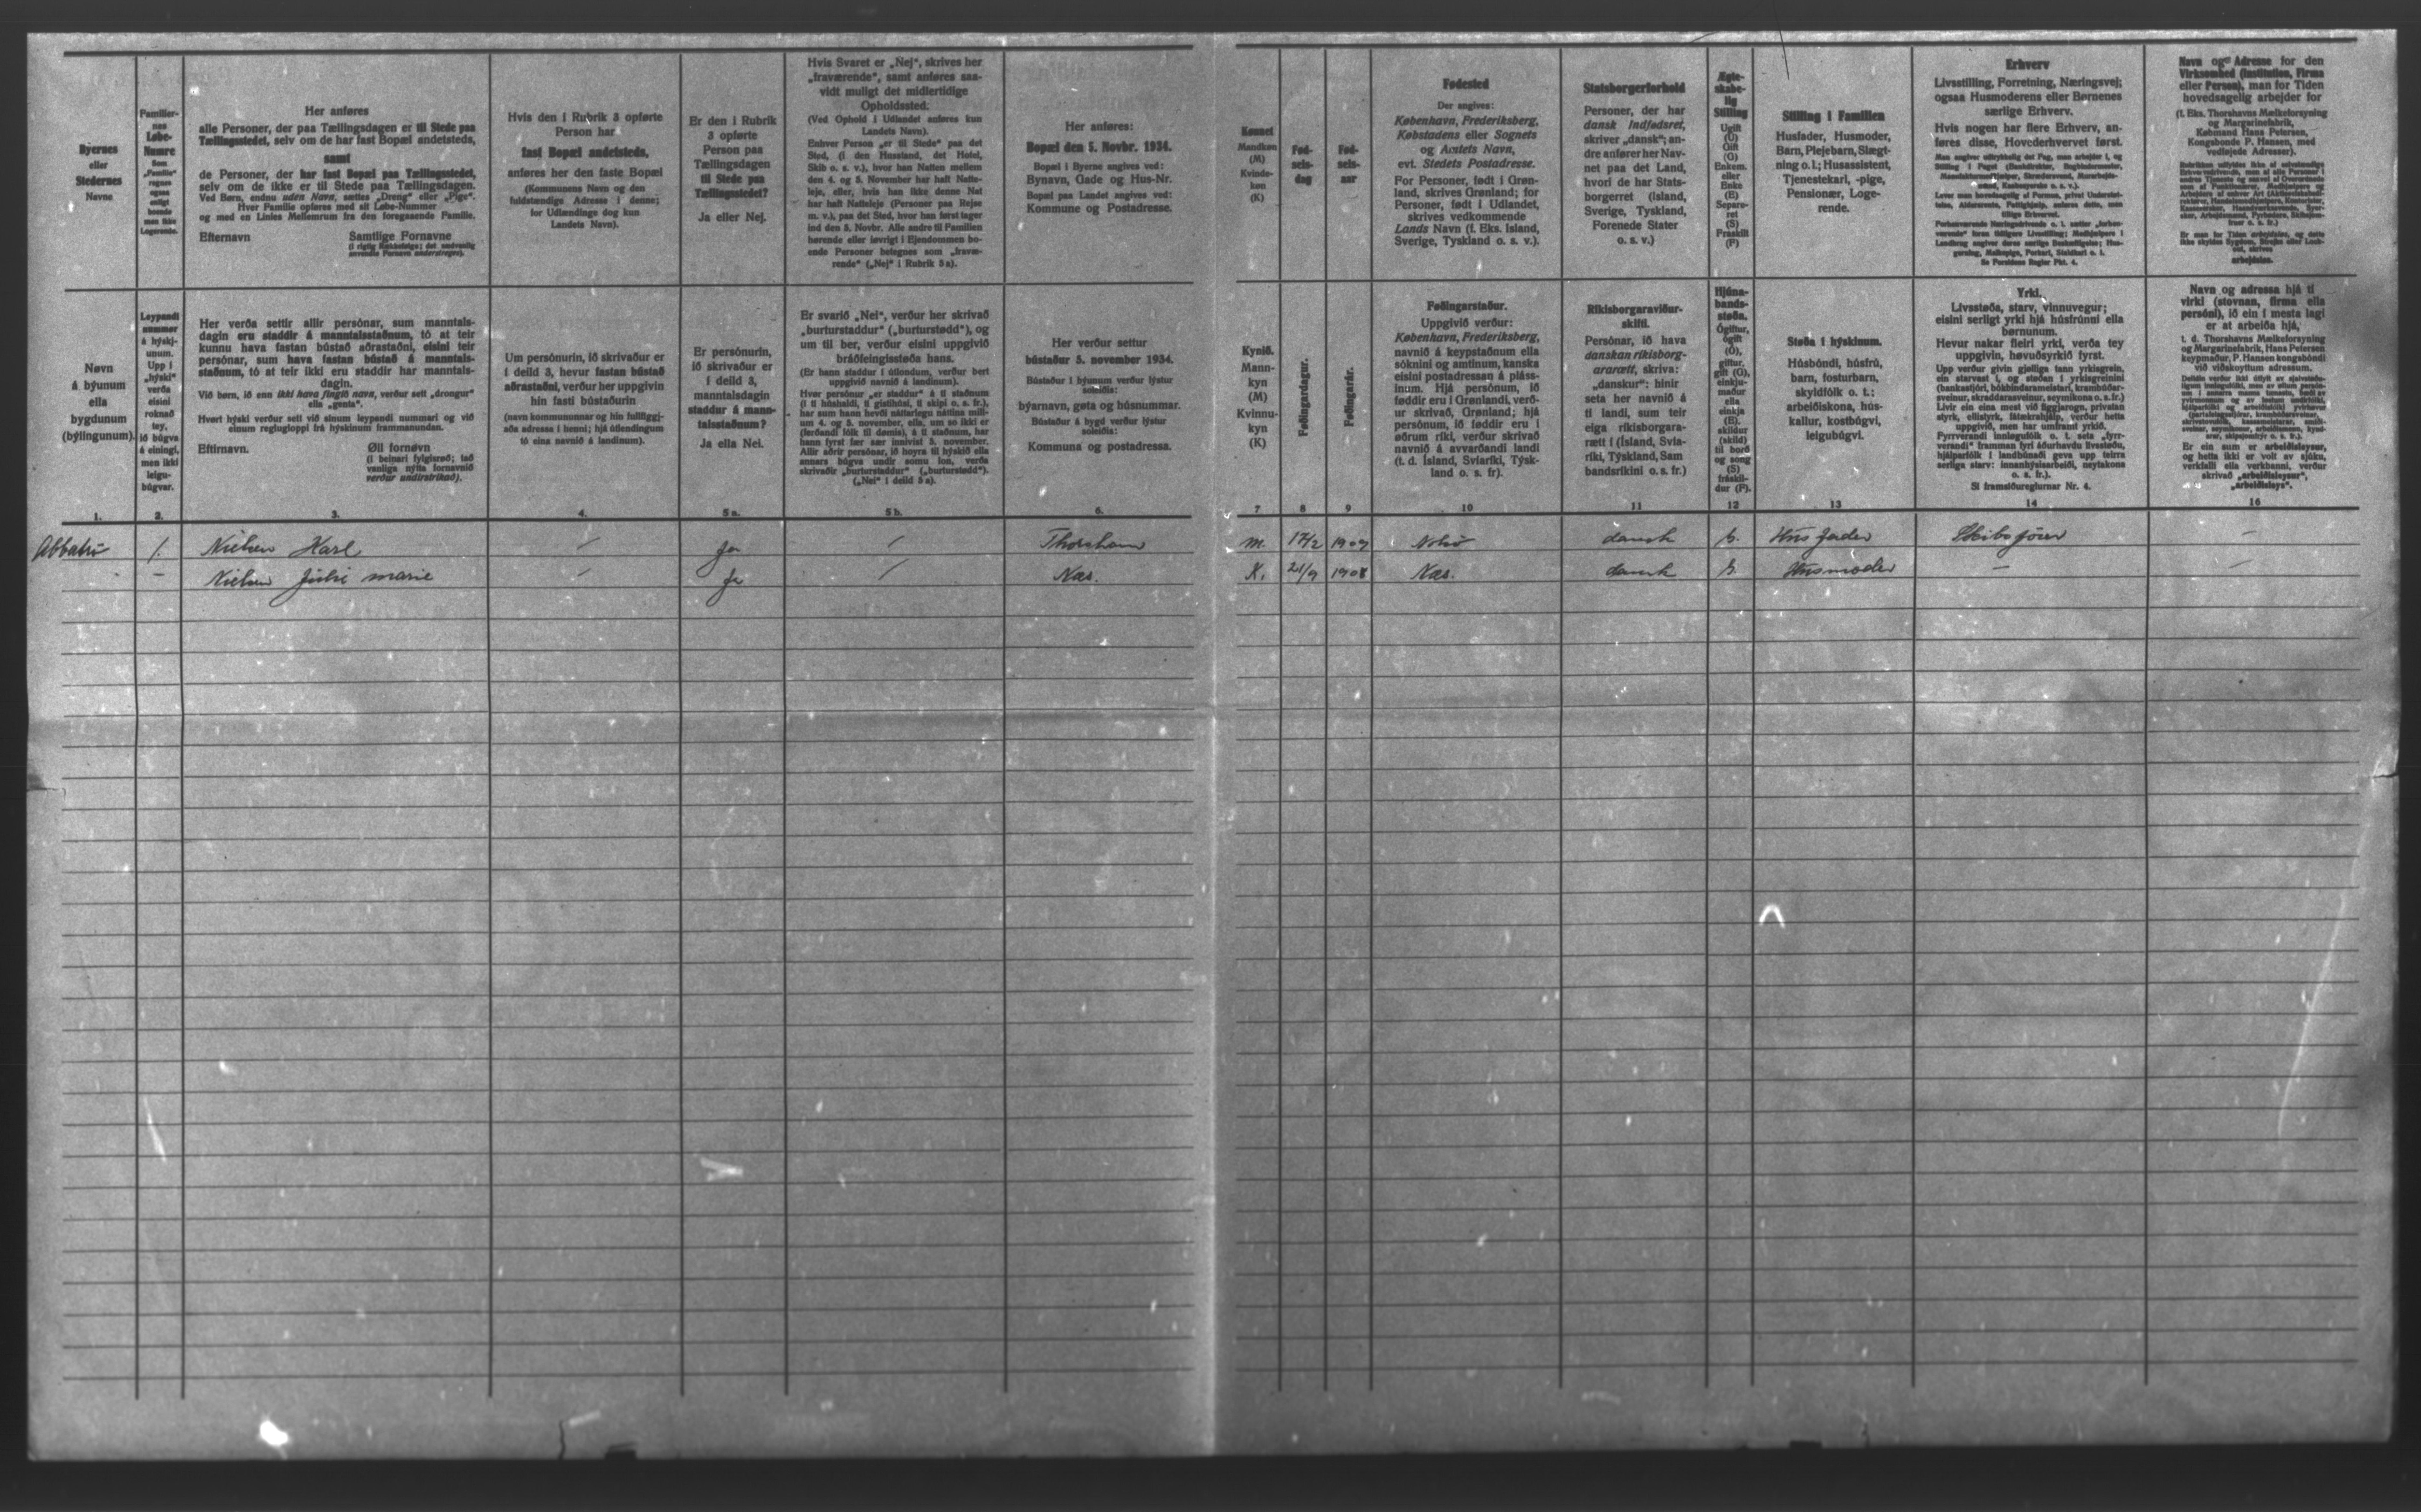 Byernes
eller
Stedernes
Navne
Familier-
nes
Løbe-
Numre
Som
„Familie“
regnes
ogsaa
enligt
boende
men ikke
Logerende.
Her anføres
alle Personer, der paa Tællingsdagen er til Stede paa
Tællingsstedet, selv om de har fast Bopæl andetsteds,
samt
de Personer, der har fast Bopæl paa Tællingsstedet,
selv om de ikke er til Stede paa Tællingsdagen.
Ved Børn, endnu uden Navn, sættes „Dreng“ eller „Pige“.
Hver Familie opføres med sit Løbe-Nummer
og med en Linies Mellemrum fra den foregaaende Familie.
Efternavn Samtlige Fornavne
(i rigtig Rækkefølge; det sædvanlig
anvendte Fornavn understreges).
Hvis den i Rubrik 3 opførte
Person har
fast Bopæl andetsteds,
anføres her den faste Bopæl
(Kommunens Navn og den
fuldstændige Adresse i denne;
for Udlændinge dog kun
Landets Navn).
Er den i Rubrik
3 opførte
Person paa
Tællingsdagen
til Stede paa
Tællingsstedet?
Ja eller Nej.
Hvis Svaret er „Nej“, skrives her
„fraværende“, samt anføres saa-
vidt muligt det midlertidige
Opholdssted.
(Ved Ophold i Udlandet anføres kun
Landets Navn).
Enhver Person „er til Stede“ paa det
Sted, (i den Husstand, det Hotel,
Skib o. s. v.), hvor han Natten mellem
den 4. og 5. November har haft Natte-
leje, eller, hvis han ikke denne Nat
har haft Natteleje (Personer paa Rejse
m. v.), paa det Sted, hvor han først tager
ind den 5. Novbr. Alle andre til Familien
hørende eller iøvrigt i Ejendommen bo-
ende Personer betegnes som „fravæ-
rende“ („Nej“ i Rubrik 5a).
Her anføres:
Bopæl den 5. Novbr. 1934.
Bopæl i Byerne angives ved:
Bynavn, Gade og Hus-Nr.
Bopæl paa Landet angives ved:
Kommune og Postadresse.
Kønnet
Mandkøn
(M)
Kvinde-
køn
(K)
Fød-
sels-
dag
Fød-
sels-
aar
Fødested
Der angives:
København, Frederiksberg,
Købstadens eller Sognets
og Amtets Navn,
evt. Stedets Postadresse.
For Personer, født i Grøn-
land, skrives Grønland; for
Personer, født i Udlandet,
skrives vedkommende
Lands Navn (f. Eks. Island,
Sverige, Tyskland o. s. v.).
Statsborgerforhold
Personer, der har
dansk Indfødsret,
skriver „dansk“; an-
dre anfører her Nav-
net paa det Land,
hvori de har Stats-
borgerret (Island,
Sverige, Tyskland,
Forenede Stater
o. s. v.)
Ægte-
skabe-
lig
Stilling
Ugift
(U)
Gift
(G)
Enkem.
eller
Enke
(E)
Separe-
ret
(S)
Fraskilt
(F)
Stilling i Familien
Husfader, Husmoder,
Barn, Plejebarn, Slægt-
ning o. l.; Husassistent,
Tjenestekarl, -pige,
Pensionær, Loge-
rende.
Erhverv
Livsstilling, Forretning, Næringsvej;
ogsaa Husmoderens eller Børnenes
særlige Erhverv.
Hvis nogen har flere Erhverv, an-
føres disse, Hovederhvervet først.
Se Forsidens Regler Pkt. 4.
Navn og Adresse for den
Virksomhed (Institution, Firma
eller Person), man for Tiden
hovedsagelig arbejder for
(f. Eks. Thorshavns Mælkeforsyning
og Margarinefabrik,
Købmand Hans Petersen,
Kongsbonde P. Hansen, med
vedføjede Adresser).
arbejdsløs.
Nøvn
á býunum
ella
bygdunum
(býlingunum).
Leypandi
nummer
á hýskj-
unum.
Upp í
„hýski“
verða
eisini
roknað
tey,
ið búgva
á einingi,
men ikki
leigu-
búgvar.
Her verða settir allir persónar, sum manntals-
dagin eru staddir á manntalsstaðnum, tó at teir
kunnu hava fastan bústað aðrastaðni, eisini teir
persónar, sum hava fastan bústað á manntals-
staðnum, tó at teir ikki eru staddir har manntals-
dagin.
Við børn, ið enn ikki hava fingið navn, verður sett „drongur“
ella „genta“.
Hvørt hýski verður sett við sínum leypandi nummari og við
einum reglugloppi frá hýskinum frammanundan.
Eftirnavn. Øll fornøvn
(í beinari fylgisrøð; tað
vanliga nýtta fornavnið
verður undirstrikað).
Um persónurin, ið skrivaður er
í deild 3, hevur fastan bústað
aðrastaðni, verður her uppgivin
hin fasti bústaðurin
(navn kommununnar og hin fullfíggj-
aða adressa í henni; hjá útlendingum
tó eina navnið á landinum).
Er persónurin,
ið skrivaður er
í deild 3,
manntalsdagin
staddur á mann-
talsstaðnum?
Ja ella Nei.
Er svarið „Nei“, verður her skrivað
„burturstaddur“ („burturstødd“), og
um til ber, verður eisini uppgivið
bráðfeingisstøða hans.
(Er hann staddur í útlondum, verður bert
uppgivið navnið á landinum).
(„Nei“ í deild 5a).
Her verður settur
bústaður 5. november 1934.
Bústaður í býunum verður lýstur
soleiðis:
býarnavn, gøta og húsnummar.
Bústaður á bygd verður lýstur
soleiðis:
Kommuna og postadressa.
Kynið.
Mann-
kyn
(M)
Kvinnu-
kyn
(K)
Føðingardagur.
Føðingarár.
Føðingarstaður.
Uppgivið verður:
København, Frederiksberg,
navnið á keypstaðnum ella
sóknini og amtinum, kanska
eisini postadressan á pláss-
inum. Hjá persónum, ið
føddir eru í Grønlandi, verð-
ur skrivað, Grønland; hjá
persónum, ið føddir eru í
øðrum ríki, verður skrivað
navnið á avvarðandi landi
(t. d. Ísland, Svíaríki, Týsk-
land o. s. fr).
Ríkisborgaraviður-
skifti.
Persónar, ið hava
danskan ríkisborg-
ararætt, skriva:
„danskur“; hinir
seta her navnið á
tí landi, sum teir
eiga ríkisborgara-
rætt í (Ísland, Svía-
ríki, Týskland, Sam
bandsríkini o. s. fr.)
Hjúna-
bands-
støða.
Ógiftur,
ógift
(Ó),
giftur,
gift (G),
einkju-
maður
ella
einkja
(E),
skildur
(skild)
til borð
og song
(S)
fráskil-
dur (F).
Støða í hýskinum.
Húsbóndi, húsfrú,
barn, fosturbarn,
skyldfólk o. l.;
arbeiðiskona, hús-
kallur, kostbúgvi,
leigubúgvi.
Yrki.
Livsstøða, starv, vinnuvegur;
eisini serligt yrki hjá húsfrúnni ella
børnunum.
Hevur nakar fleiri yrki, verða tey
uppgivin, høvuðsyrkið fyrst.
Sí framsíðureglurnar Nr. 4.
Navn og adressa hjá tí
virki (stovnan, firma ella
persóni), ið ein í mesta lagi
er at arbeiða hjá,
t. d. Thorshavns Mælkeforsyning
og Margarinefabrik, Hans Petersen
keypmaður, P. Hansen kongsbóndi
við viðskoyttum adressum.
Er ein sum er arbeiðisleysur,
og hetta ikki er volt av sjúku,
verkfalli ella verkbanni, verður
skrivað „arbeiðisleysur“,
„arbeiðisleys“.
1. 2. 3. 4. 5a. 5b. 6. 7 8 9 10 11 12 13 14 16
1. Nielsen Karl / Ja / Thorshavn M. 17/2 1909 Nolsø dansk G. Husfader Skibsfører —
— Nielsen Julie Marie / Ja / Næs. K. 21/9 1908 Næs. dansk G. Husmoder — —